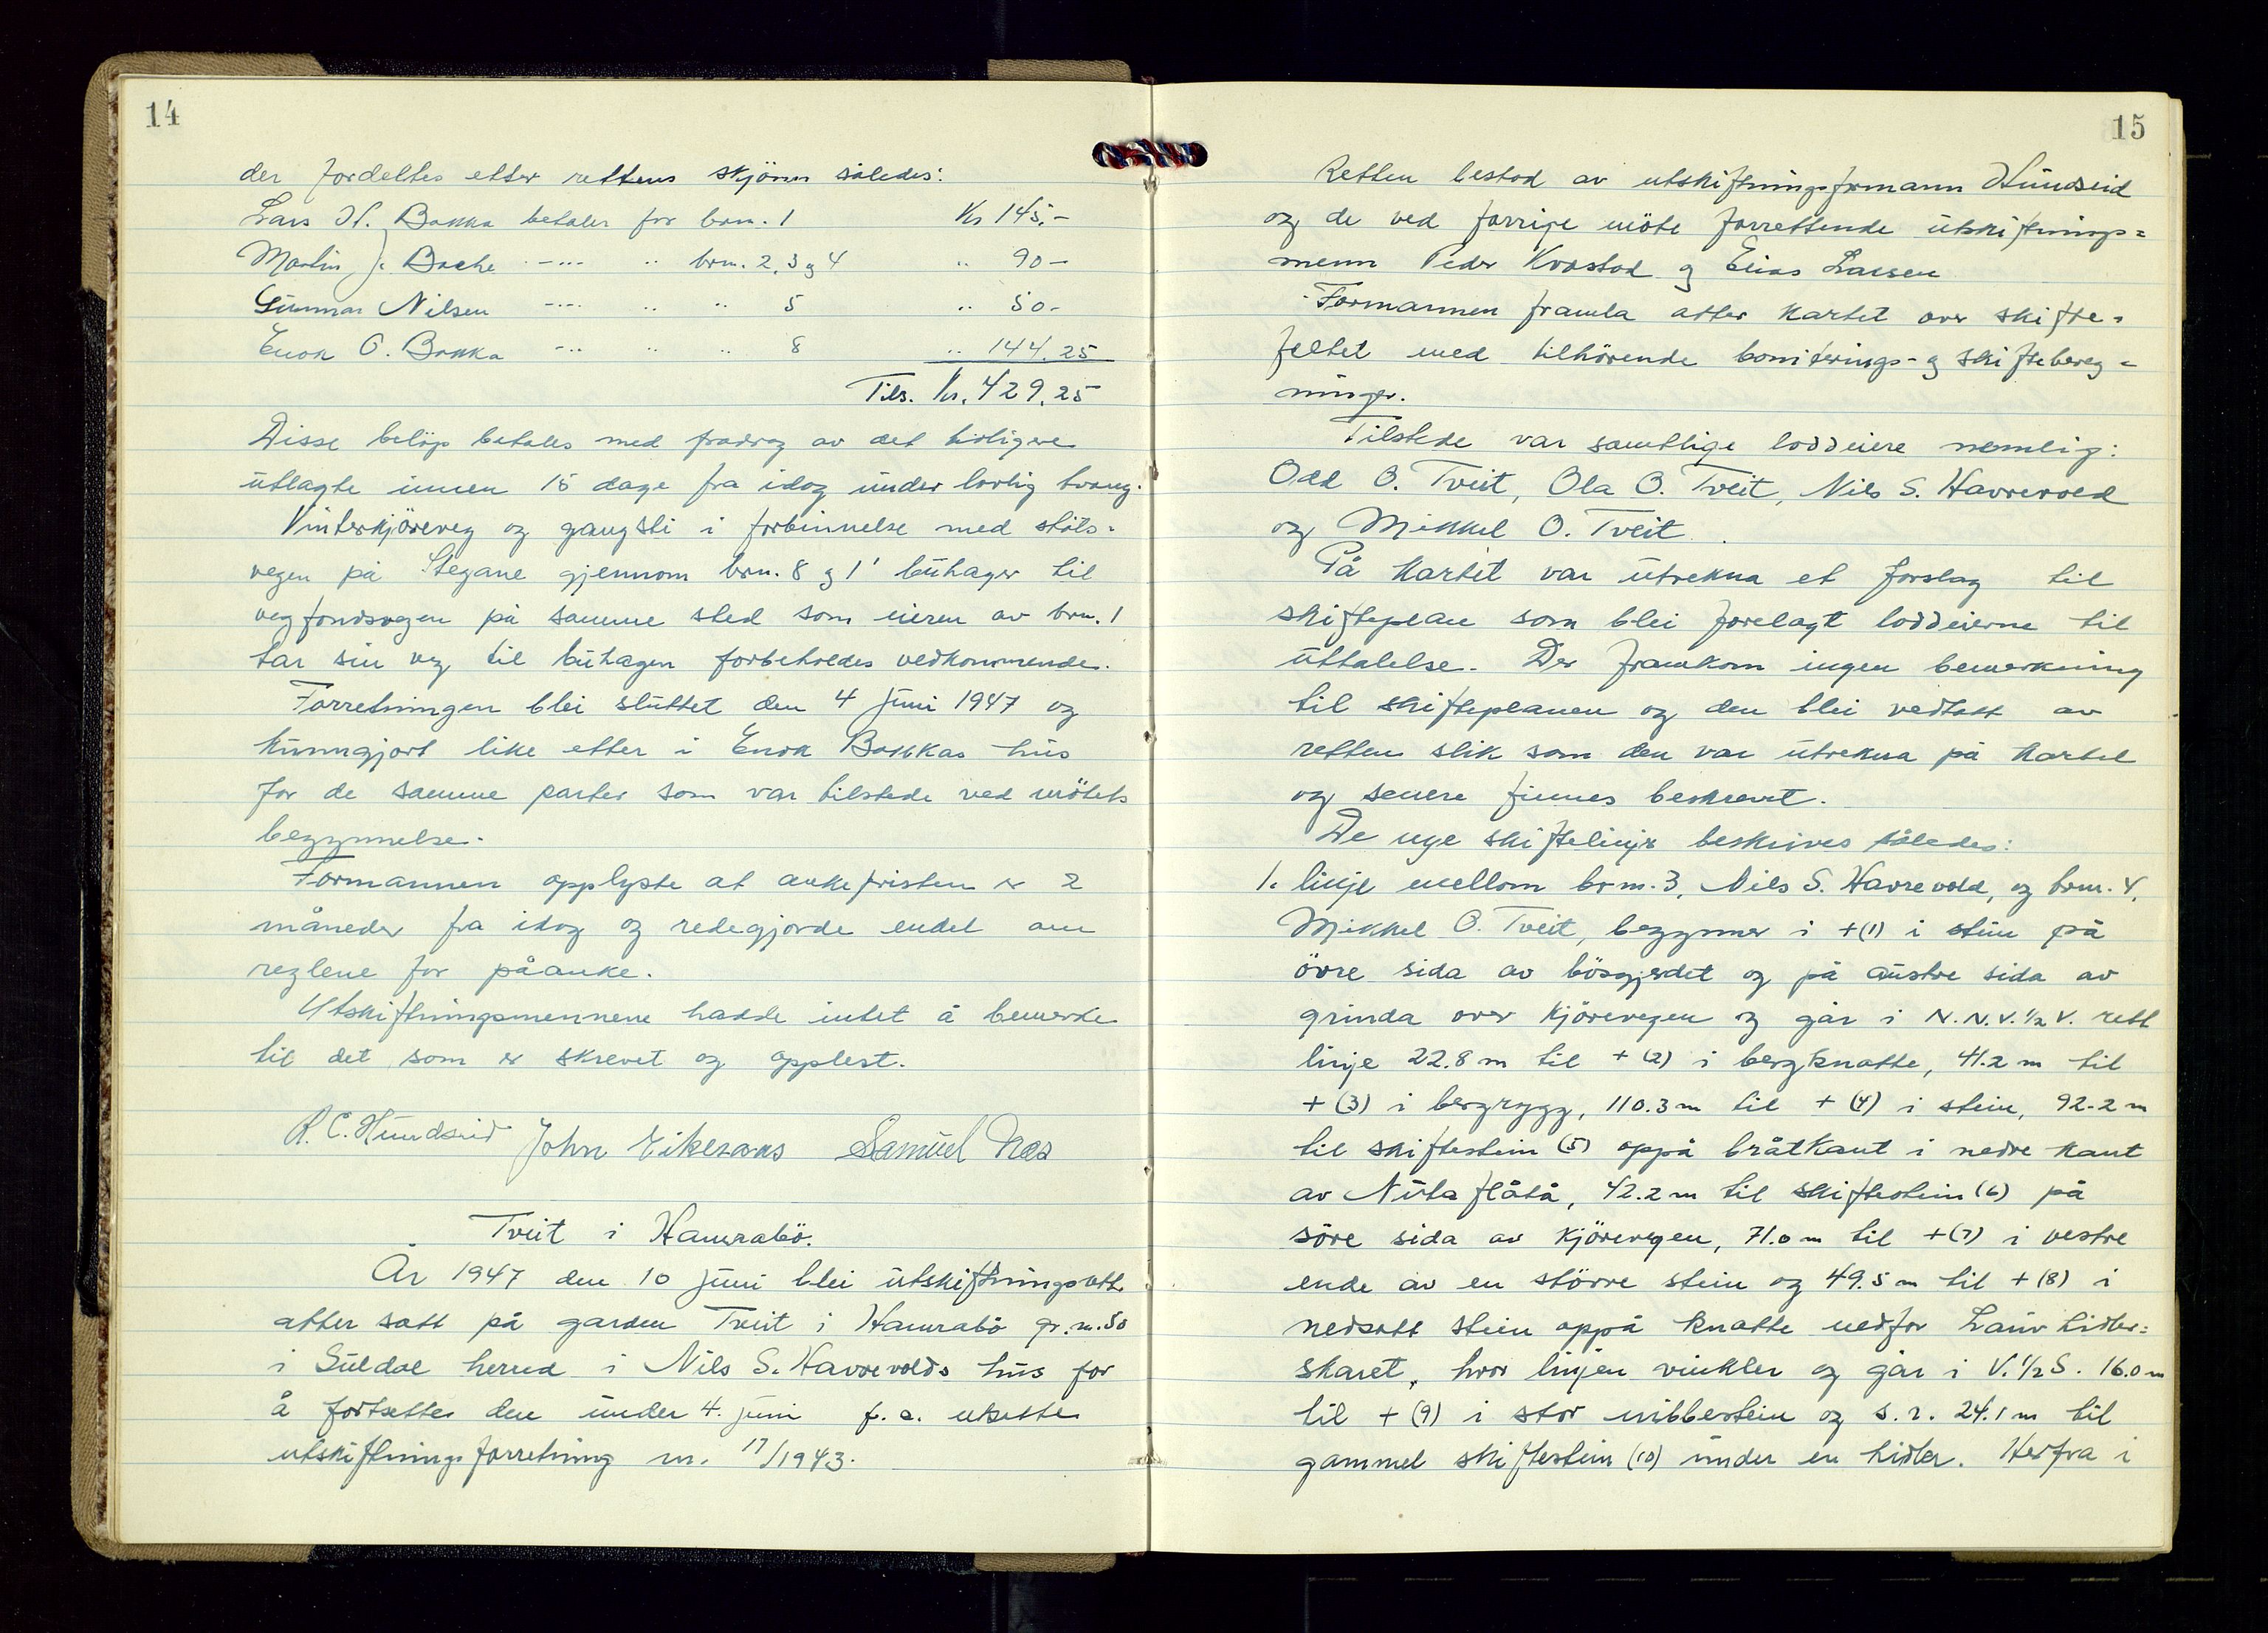 14
der fordeltes etter rettens skjönn således:
Lars N. Bakka betaler for brn. 1 Kr 145.-
Martin J. Bache -"- " brn. 2, 3 og 4 " 90-
Gunnar Nilsen -"- " " 5 " 50-
Enok O. Bakka -"- " " 8 " 144.25
Tils. Kr. 429.25
Disse belöp betales med fradrag av det tidligere
utlagte innen 15 dage fra idag under lovlig tvang.
Vinterkjöreveg og gangsti i forbinnelse med støls-
vegen på Stegane gjennom brn. 8 og 1' buhager til
vegfondsvegen på samme sted som eieren av brn. 1
tar sin veg til buhagen forbeholdes vedkommende.
Forretningen blei sluttet den 4 juni 1947 og
kunngjort like etter i Enok Bakkas hus
for de samme parter som var tilstede ved mötets
begynnelse.
Formannen opplyste at ankefristen er 2
måneder fra idag og redegjorde endel om
reglene for påanke.
Utskiftningsmennene hadde intet å bemerke
til det som er skrevet og opplest.
R. C. Hundseid John Eikesaas Samuel Næs
Tveit i Hamrabö.
År 1947 den 10 juni blei utskiftningsrett
atter satt på garden Tveit i Hamrabö gr. n. 50
i Suldal herred i Nils S. Havrevolds hus for
å fortsette den under 4. juni f. å. utsatte
utskiftningsforretning nr. 17/1943.
15
Retten bestod av utskiftningsformann Hundseid
og de ved forrige möte forrettende utskiftnings=
menn Peder Kvastad og Elias Larsen
Formannen framla atter kartet over skifte-
feltet med tilhörende boniterings- og skiftebereg=
ninger.
Tilstede var samtlige loddeiere nemlig:
Odd O. Tveit, Ola O. Tveit, Nils S. Havrevold
og Mikkel O. Tveit.
På kartet var utrekna et forslag til
skifteplan som blei forelagt loddeierne til
uttalelse. Der framkom ingen bemerkning
til skifteplanen og den blei vedtatt av
retten slik som den var utrekna på kartet
og senere finnes beskrevet.
De nye skiftelinjer beskrives således:
1. linje mellom brn. 3, Nils S. Havrevold, og brn. 4,
Mikkel O. Tveit, begynner i +(1) i stein på
övre sida av bösgjerdet og på austre sida av
grinda over kjörevegen og går i N.N.V.½V. rett
linje 22.8 m til +(2) i bergknatte, 41.2 m til
+(3) i bergrygg, 110.3 m til +(4) i stein, 92.2 m
til skiftestein (5) oppå bråtkant i nedre kant
av Nutaflåtå, 42.2 m til skiftestein (6) på
söre sida av kjörevegen, 71.0 m til +(7) i vestre
ende av en större stein og 49.5 m til +(8) i
nedsatt stein oppå knatte nedfor Lauvhidler=
skaret, hvor linjen vinkler og går i V.½S. 16.0 m
til +(9) i stor nibbestein og s. r. 24.1 m til
gammel skiftestein (10) under en hidler. Herfra i